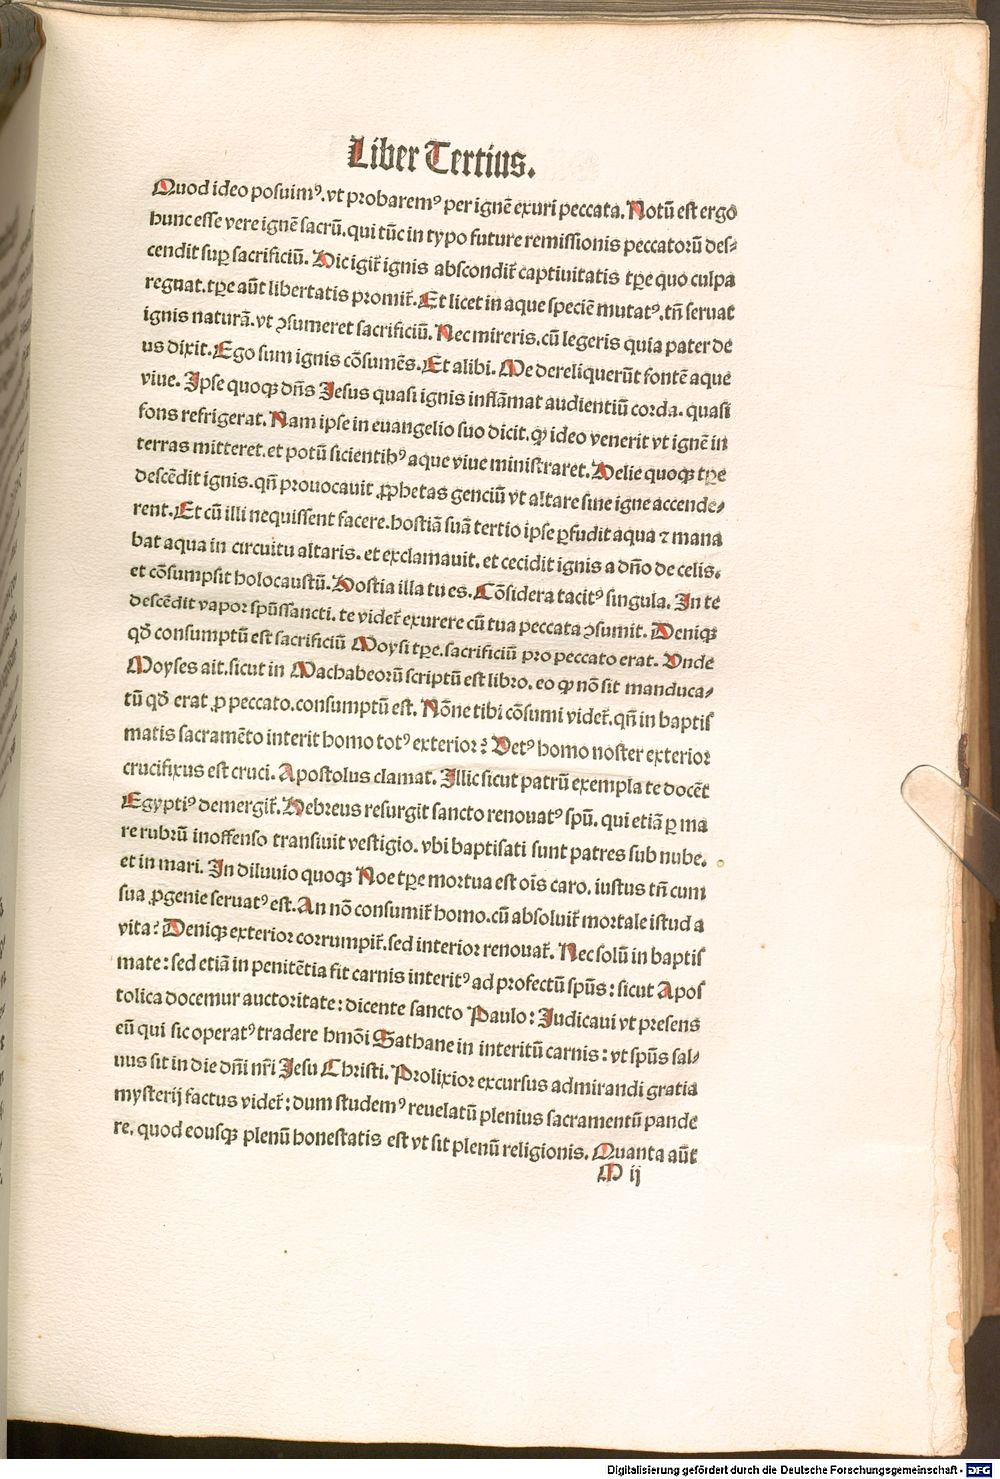 Liber Tertius.
Quod ideo posuimꝰ. vt probaremꝰ per ignē exuri peccata. Notū est ergo
hunc esse vere ignē sacrū. qui tūc in typo future remissionis peccatorū des⸗
cendit suꝑ sacrificiū. Hic igit̃ ignis abscondit̃ captiuitatis tꝑe quo culpa
regnat. tꝑe aūt libertatis promit̃. Et licet in aque speciē mutatꝰ. tñ seruat
ignis naturā. vt ꝯsumeret sacrificiū. Nec mireris. cū legeris quia pater de
us dixit. Ego sum ignis cōsumēs. Et alibi. Me dereliquerūt fontē aque
viue. Ipse quoqꝫ dñs Jesus quasi ignis inflāmat audientiū corda. quasi
fons refrigerat. Nam ipse in euangelio suo dicit. ꝙ ideo venerit vt ignē in
terras mitteret. et potū sicientibꝰ aque viue ministraret. Helie quoqꝫ tꝑe
descēdit ignis. qñ prouocauit ꝓphetas genciū vt altare sine igne accende⸗
rent. Et cū illi nequissent facere. hostiā suā tertio ipse ꝑfudit aqua ⁊ mana
bat aqua in circuitu altaris. et exclamauit. et cecidit ignis a dño de celis.
et cōsumpsit holocaustū. Hostia illa tu es. Cōsidera tacitꝰ singula. In te
descēdit vapor spūssancti. te videt̃ exurere cū tua peccata ꝯsumit. Deniqꝫ
qđ consumptū est sacrificiū Moysi tꝑe. sacrificiū pro peccato erat. Vnde
Moyses ait. sicut in Machabeorū scriptū est libro. eo ꝙ nō sit manduca⸗
tū qđ erat ꝓ peccato. consumptū est. Nōne tibi cōsumi videt̃. qñ in baptis
matis sacramēto interit homo totꝰ exterior? Vetꝰ homo noster exterior
crucifixus est cruci. Apostolus clamat. Illic sicut patrū exempla te docēt
Egyptiꝰ demergit̃. Hebreus resurgit sancto renouatꝰ spū. qui etiā ꝑ ma
re rubrū inoffenso transiuit vestigio. vbi baptisati sunt patres sub nube.
et in mari. In diluuio quoqꝫ Noe tꝑe mortua est oīs caro. iustus tñ cum
sua ꝓgenie seruatꝰ est. An nō consumit̃ homo. cū absoluit̃ mortale istud a
vita? Deniqꝫ exterior corrumpit̃. sed interior renouat̃. Nec solū in baptis
mate: sed etiā in penitētia fit carnis interitꝰ ad profectū spūs: sicut Apos
tolica docemur auctoritate: dicente sancto Paulo: Iudicaui vt presens
eū qui sic operatꝰ tradere hmōi Sathane in interitū carnis: vt spūs sal⸗
uus sit in die dñi nr̄i Jesu Christi. Prolixior excursus admirandi gratia
mysterij factus videt̃: dum studemꝰ reuelatū plenius sacramentū pande
re. quod eousqꝫ plenū honestatis est vt sit plenū religionis. Quanta aūt
M ij
Digitalisierung gefördert durch die Deutsche Forschungsgemeinschaft - DFG